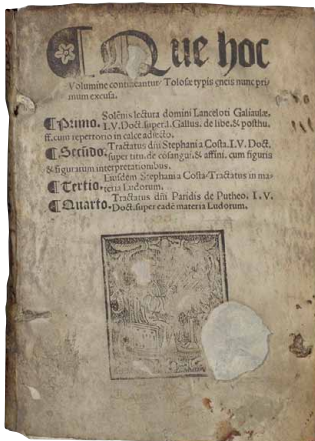 ¶ Que hoc
Volumine contineantur Tolosæ typis æneis nunc pri-
mum excusa.
Solẽnis lectura domini Lanceloti Galiaulæ.
¶ Primo. I.V. Doct. super.l. Gallus. de libe. & posthu.
ff. cum repertorio in calce adiecto.
Tractatus dñi Stephani a Costa. I.V. Doct.
¶ Secũdo. super titu. de cõsangui. & affini. cum figuris
& figuratum interpretationibus.
Eiusdem Stephani a Costa. Tractatus in ma-
¶ Tertio. teria Ludorum.
Tractatus dñi Paridis de Putheo. I.V.
¶ Quarto. Doct. super eadẽ materia Ludorum.